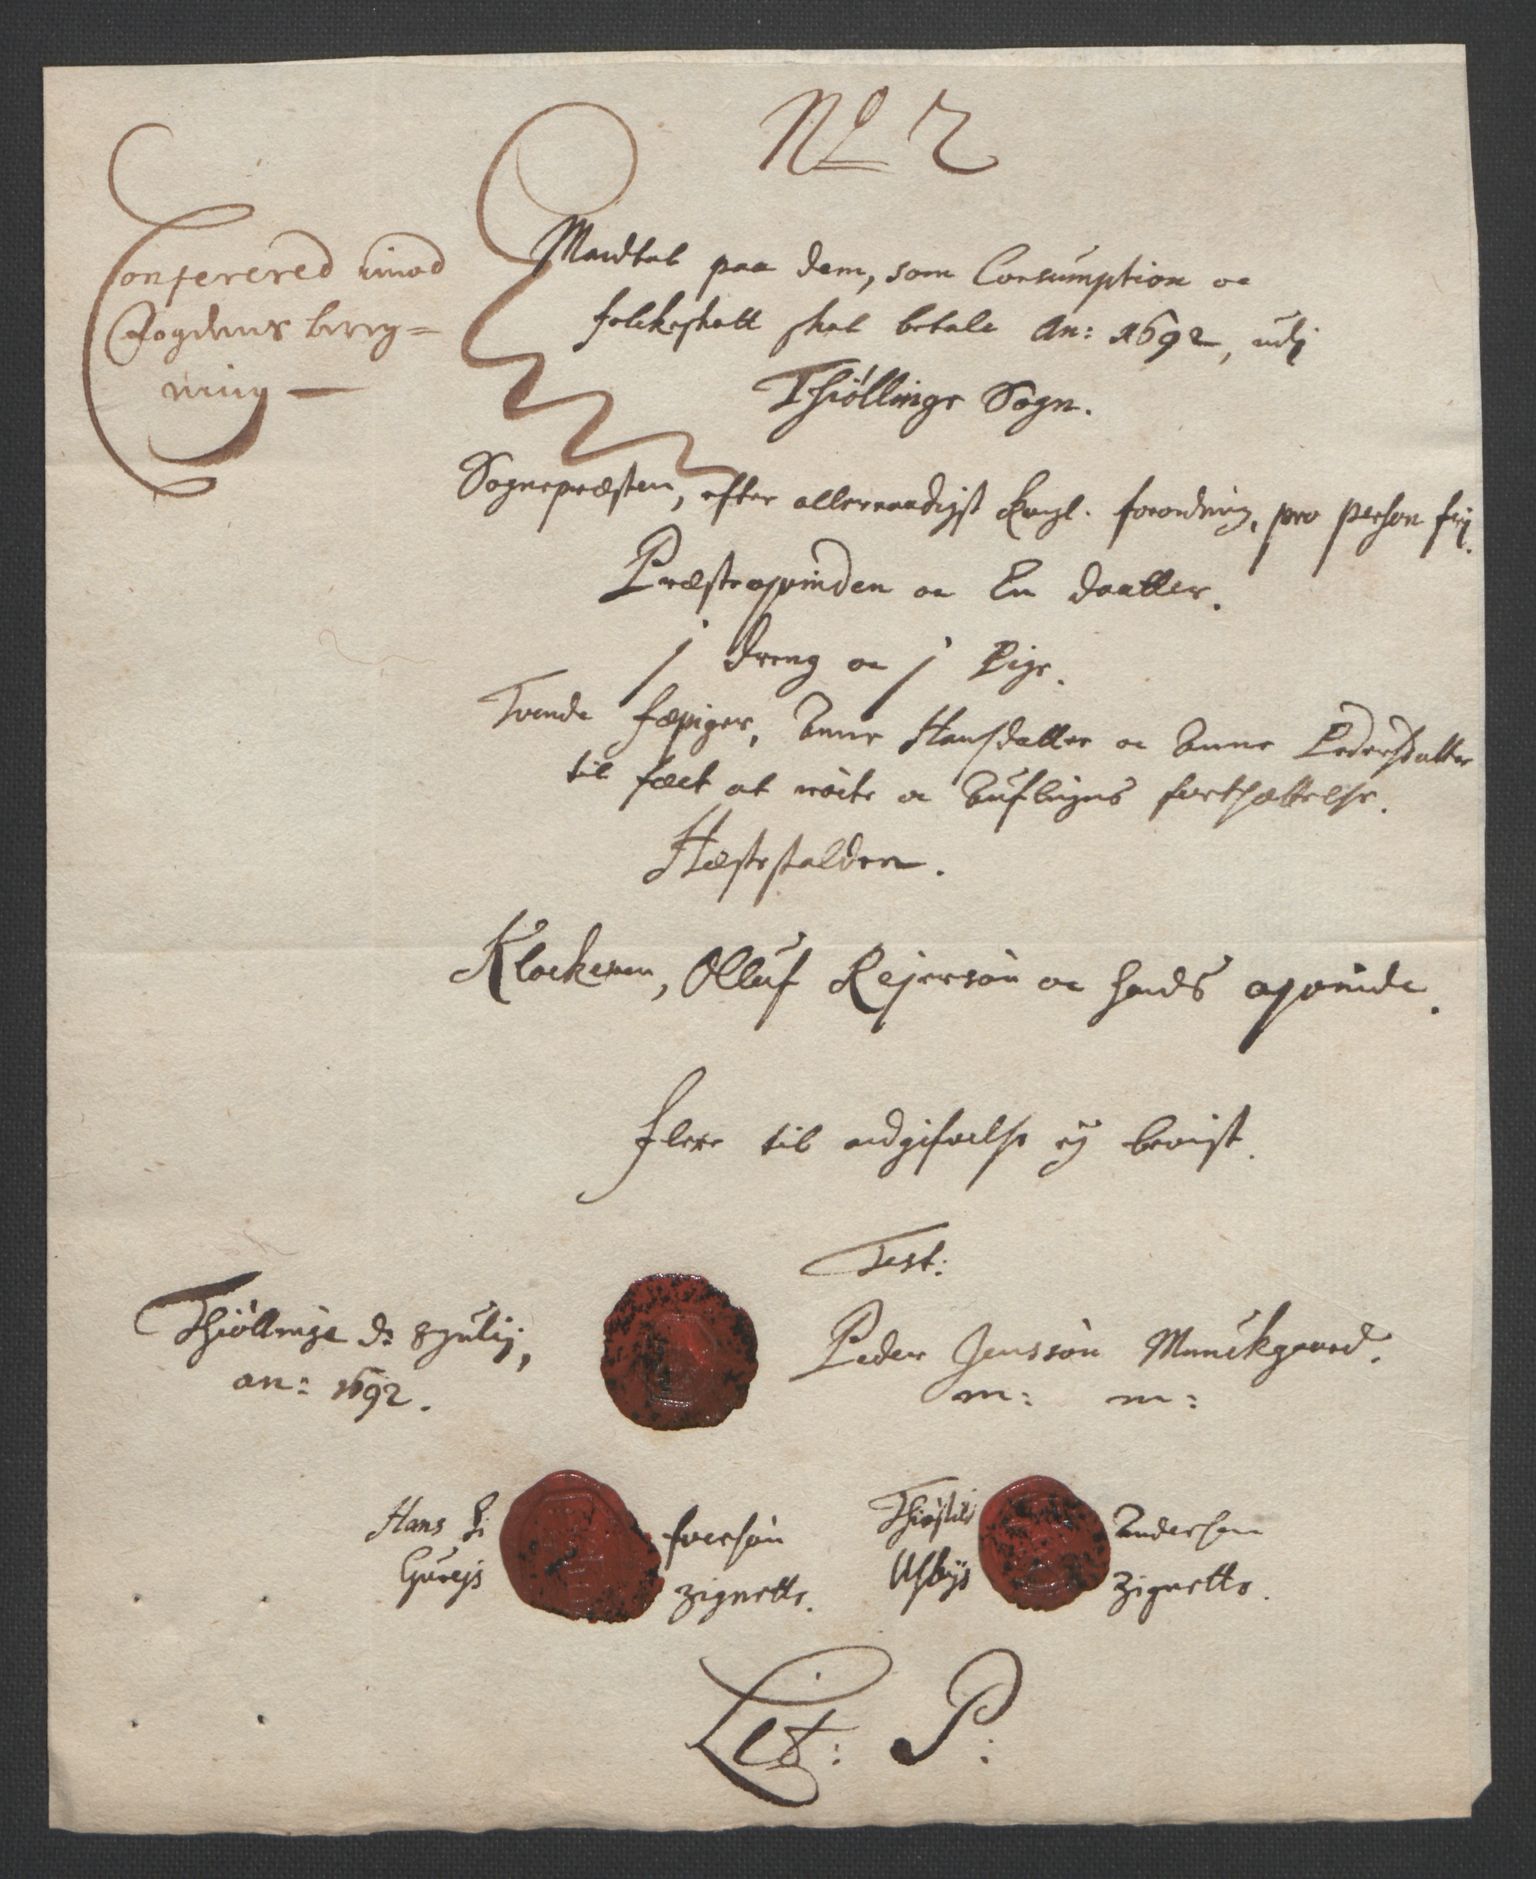 No 2
Conferered imod
Fogdens bereg=
ning
Mandtal paa dem, som Consumption oc
folckeskatt skal betale An: 1692, udj
Thiøllinge Sogn.
Sognepræsten, efter allernaadigst Kongl. forordning, pro person frj.
Præsteqvinden oc En daatter.
j dreng oc j Pige.
Tvende fæpiger, Anne Hansdatter oc Anne Pedersdatter
til fæet at røcte oc Auflingens fortsættelse.
Hæstestalden.
Klockeren, Olluf Rejersøn oc hands qvinde.
Flere til udgifvelse ej bevist.
Test:
Thiøllinge d: 8 Julij,
an: 1692.
Peder Jenssøn Munckgaard.
m: m:
Hans
Iversøn
Gurejs
Zignette.
Thiøstel
Andersen
Zignette.
Lit: P: